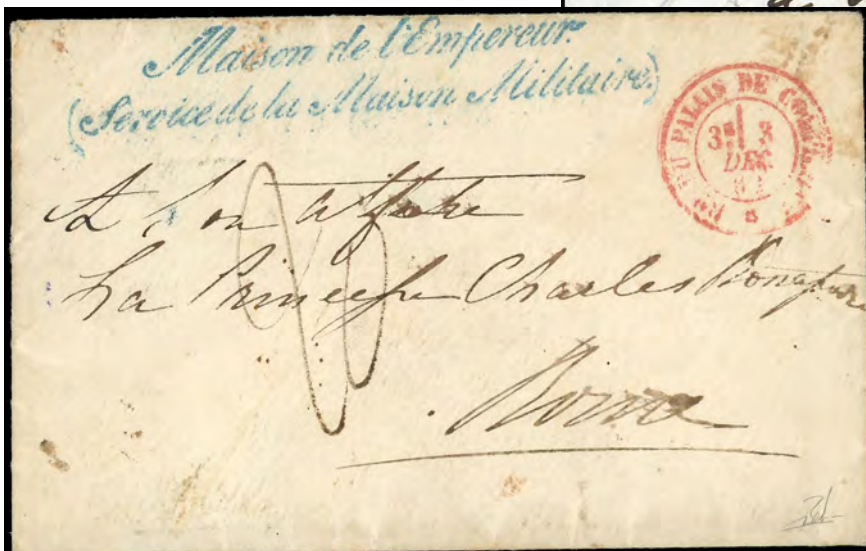 Maison de l'Empereur.
(Service de la Maison Militaire.)
DU PALAIS DE
3
DEC
A Son Altesse
La Princesse Charles Bonaparte
Rome